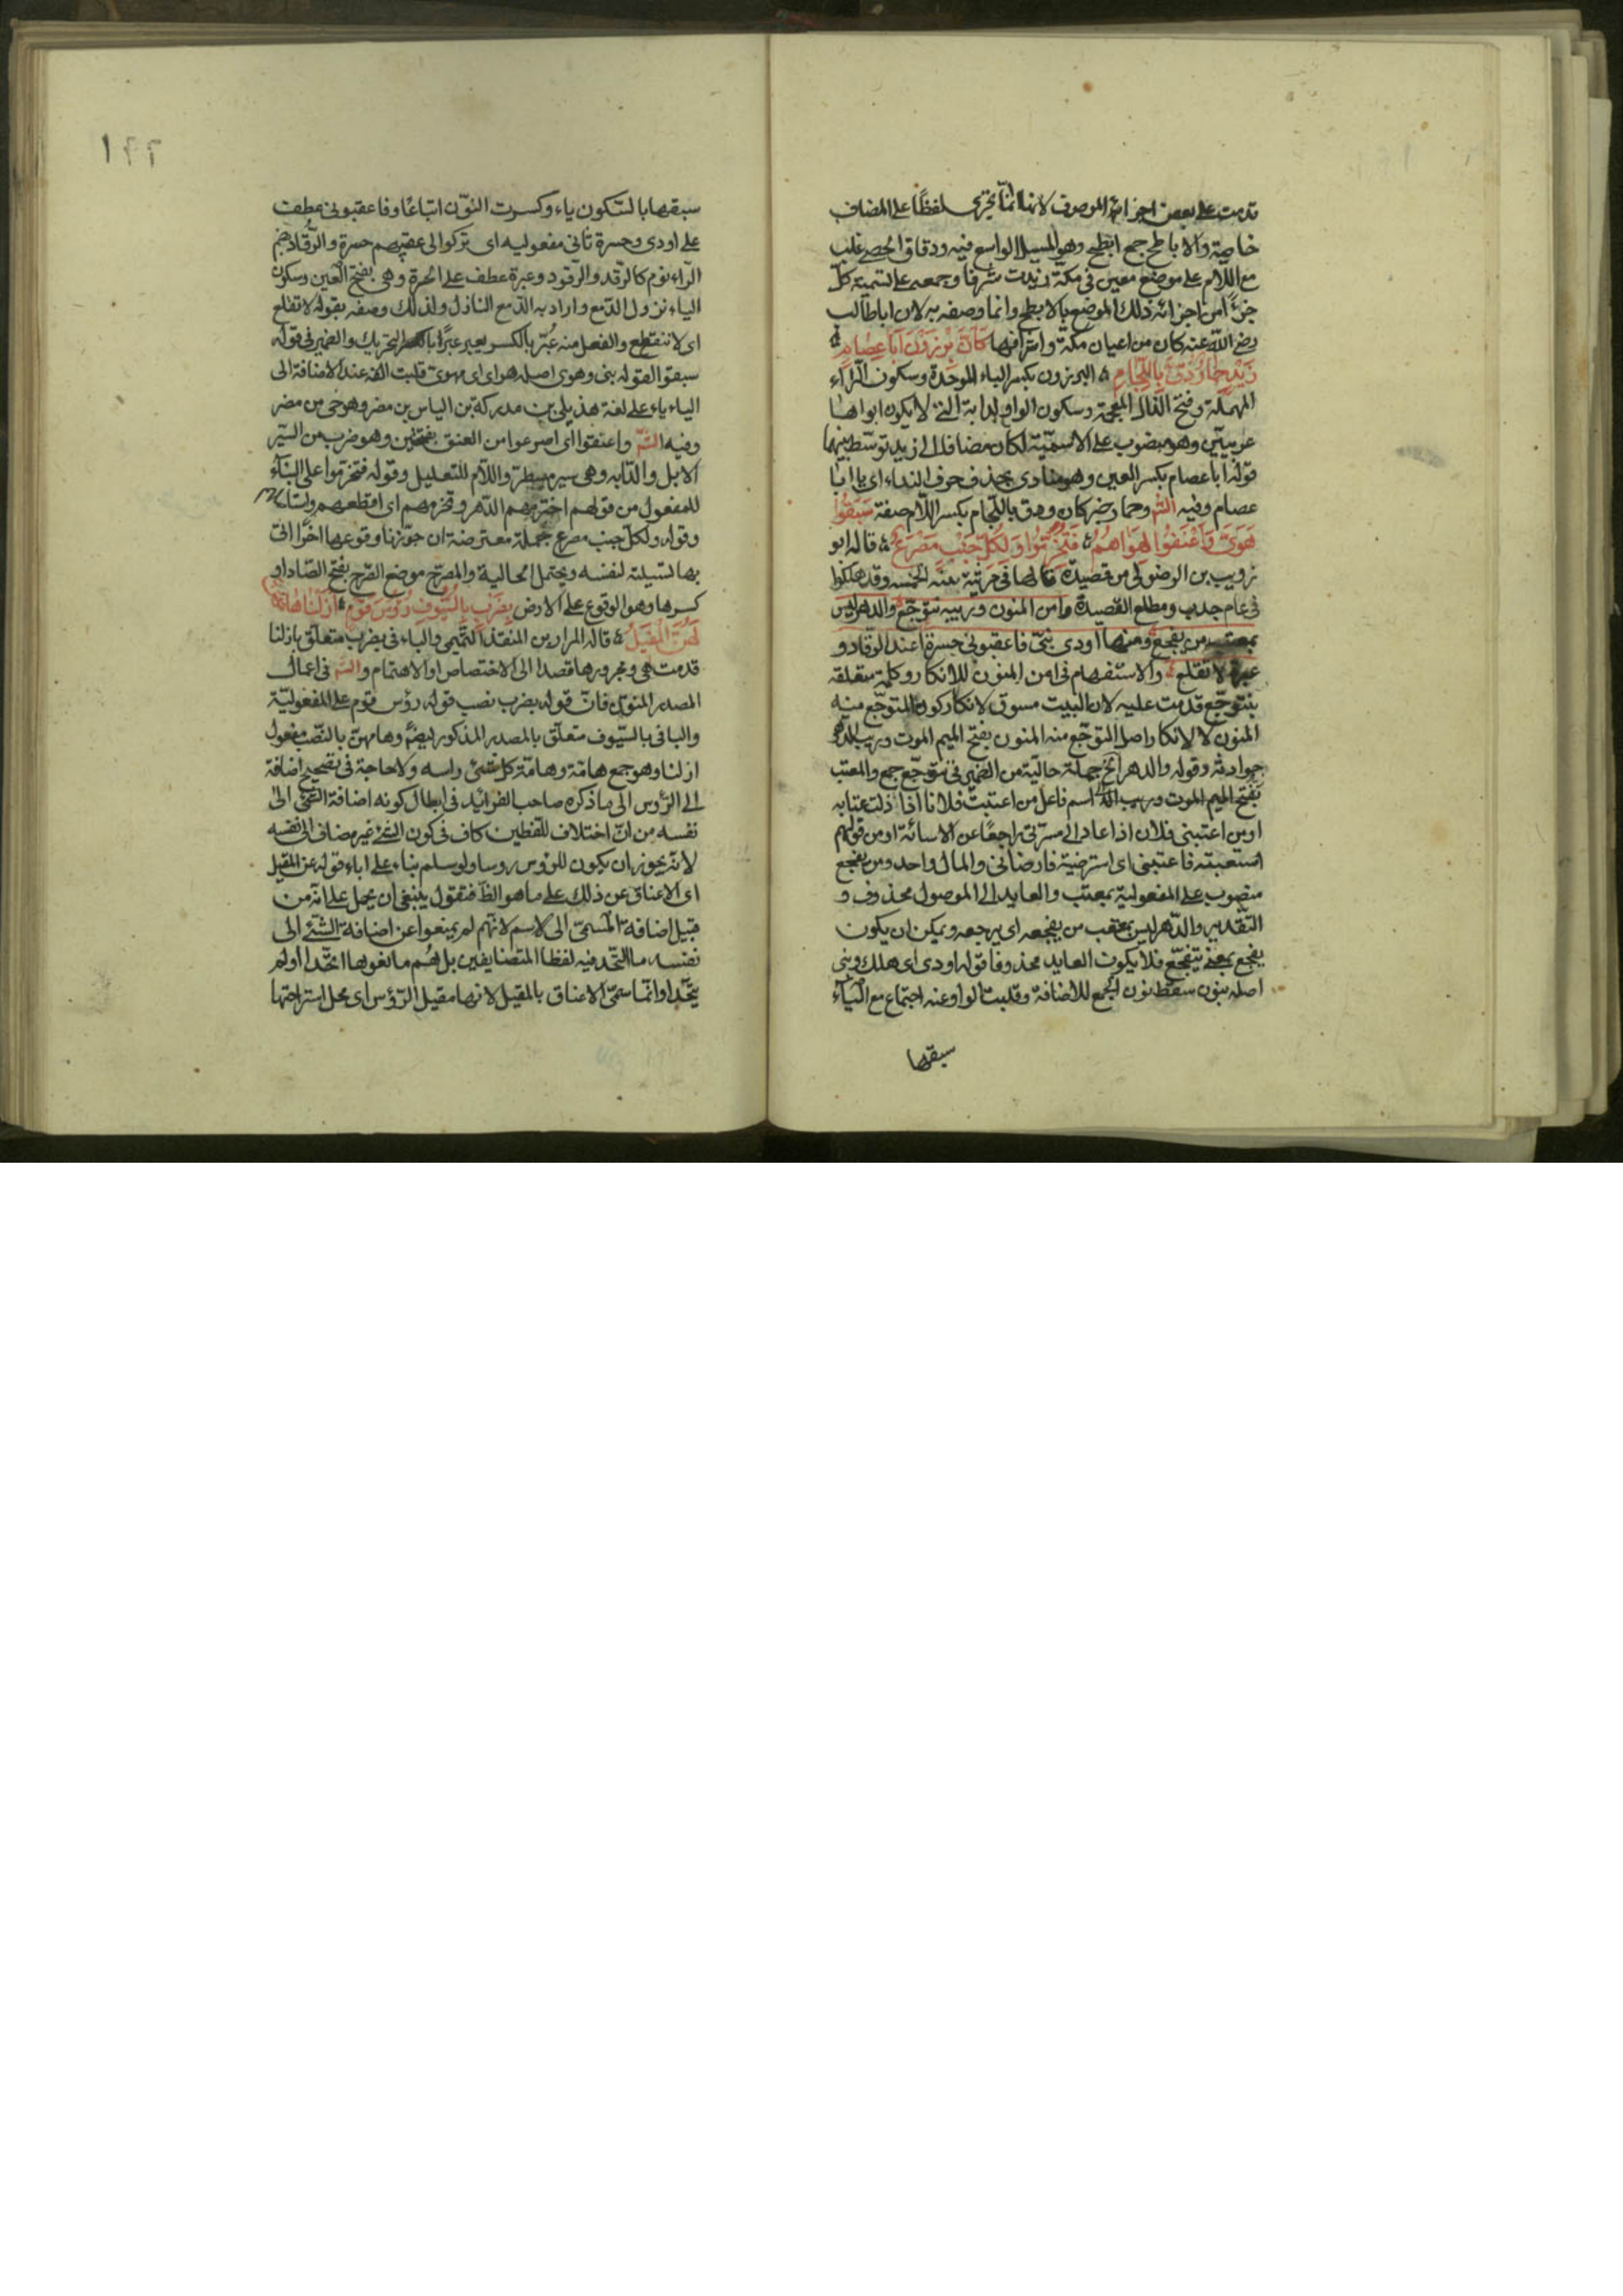 قدمت على بعض اجزائه الموصوف لانها انما تجرى لفظا على المضاف
خاصة والاباطح جمع ابطح وهو المسيل الواسع فيه ودقاق الحصى غلب
مع اللام على موضع معين فى مكة زيدت شرفا وجمعه على تسمية كل
جزء من اجزائه ذلك الموضع بالابطح وانما وصفه به لان اباطالب
رضى الله عنه كان من اعيان مكة واشرافها كَاَنَّ بِرْذَوْنَ اَبَا عِصَامٍ
زَيْدٍ حِمَارٌ دُقَّ بِاللِّجَامِ البرذون بكسر الباء الموحدة وسكون الراء
المهملة وفتح الذال المعجمة وسكون الواو الدابة التى لا يكون ابواها
عربيين وهو منصوب على الاسمية لكان مضاف الى زيد توسط بينهما
قوله ابا عصام بكسر العين وهو منادى بحذف حرف النداء اى يا ابا
عصام وفيه الشّ وحمار خبر كان ودق باللجام بكسر اللام صفة سَبَقُوا
هَوَىَّ وَاَعْنَقُوا لِهَوَاهُمُ فَتُخُرِّمُوا وَلِكُلِّ جَنْبٍ مَصْرَعُ قاله ابو
زويب بن الرضولى من قصيدة قالها فى مرثية بنيه الخمسه وقد هلكوا
فى عام جدب ومطلع القصيدة وامن المنون وريبه تتوجّع والدهر ليس
بمعتب من يفجع ومنها اودى بنىّ فاعقبونى حسرة عند الرقاد و
عبرة لا تقلع والاستفهام فى امن المنون للانكار وكلمة متعلقة
بتتوجّع قدمت عليه لان البيت مسوق لانكار كون المتوجّع منه
المنون لا لانكار اصل التوجّع منه المنون بفتح الميم الموت وريب الدهر
حوادثه وقوله والدهر الخ جملة حالية من الضمير فى تتوجّع جمع والمعتب
بفتح الميم الموت وريب اسم فاعل من اعتبت فلانا اذا ذلت عتابه
اومن اعتبنى فلان اذا عاد الى مسرتى راجعًا عن الاسائة اومن قولهم
استعتبته فاعتبنى اى استرضيته فارضانى والمال واحد ومن يفجع
منصوب على المفعولية بمعتب والعايد الى الموصول محذوف و
التقدير والدهر ليس بمعتب من يفجعه اى يرجعه ويمكن ان يكون
يفجع بمعنى يتفجّع فلا يكون العايد محذوفا قوله اودى اى هلك وبنى
اصله بنون سقط نون الجمع للاضافة وقلبت الواو عند اجتماع مع الياء
سبقها
١٩٢
سبقها بالسكون ياء وكسرت النون اتباعًا وفاعقبونى عطف
على اودى وحسرة ثانى مفعوليه اى تركوا لى عقبهم حسرة والرُّقاد بضم
الراء نوم كالرقد والرقود وعبرة عطف على الحرة وهى بفتح العين وسكون
الياء نزول الدمع واراد به الدمع النازل ولذلك وصفه بقوله لا تقلع
اى لا تنقطع والفعل منه عُبّر بالكسر يعبر عبرًا بالتحريك والضمير فى قوله
سبقوا لقوله بنى وهوى اصله هواى اى مهوى قلبت الفه عند الاضافة الى
الياء ياء على لغة هذيل بن مدركة بن الياس بن مضر وهو حى من مضر
وفيه الشّ واعنقوا اى اسرعوا من العنق بفتحتين وهو ضرب من السير
الابل والدابه وهى سير مسبطر واللام للتعليل وقوله فتخرموا على البناء
للمفعول من قولهم اخترمهم الدهر وتخرمهم اى اقطعهم واستاصلهم
وقوله ولكل جنب مصرع جملة معترضة ان جوّزنا وقوعها اخرًا اتى
بها لتسيلة لنفسه ويحتمل الحالية والمصرع موضع الصرع بفتح الصاد او
كسرها وهو الوقوع على الارض بِضَرْبٍ بِالسُّيُوفِ رُؤُسَ قَوْمٍ اَزَلْنَا هَامَهُنَّ
عَنِ الْمَقِيلِ قاله المرار بن المنقذ التميمى والباء فى بضرب متعلق بازلنا
قدمت هى ومجرورها قصدا الى الاختصاص او الاهتمام والشّ فى اعمال
المصدر المنوّن فان قوله بضرب نصب قوله رؤس قوم على المفعولية
والبا فى بالسيوف متعلق بالمصدر المذكور ايضًا وهامهن بالنصب مفعول
ازلنا وهو جمع هامة وهامة كل شئ راسه ولا حاجة فى تصحيح اضافة
الى الرؤس الى ما ذكره صاحب الفرائد فى ابطال كونه اضافة الشئ الى
نفسه من انّ اختلاف للفظين كاف فى كون الشئ غير مضاف الى نفسه
لانه يجوز ان يكون للرؤس رؤسا ولو سلم بناء على اباء قوله عن المقيل
اى الاعناق عن ذلك على ما هو الظ فنقول ينبغى ان يحمل على انه من
قبيل اضافة المسمّى الى الاسم لانهم لم يمنعوا عن اضافة الشئ الى
نفسه ما اتّحد فيه لفظا المتضايفين بل هُم مانعوها اتحدا اولم
يتّحدا وانما سمّى الاعناق بالمقيل لانها مقيل الرؤس اى محل استراحتها